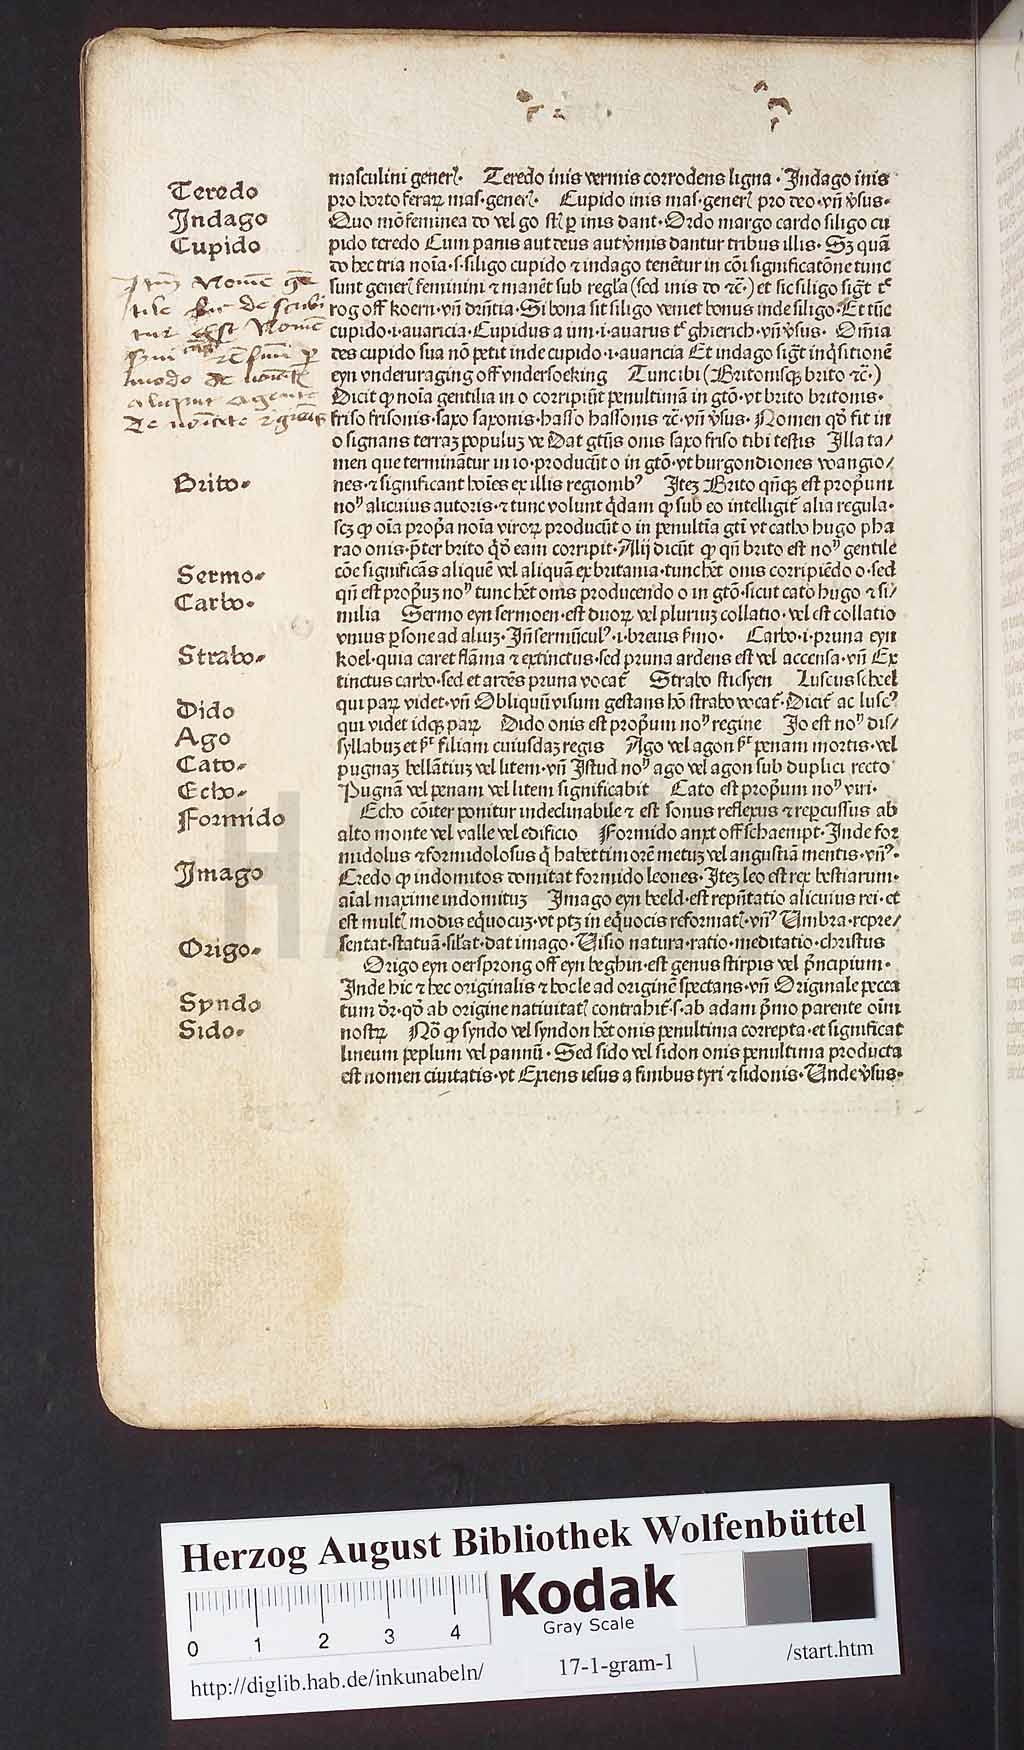 Teredo
Indago
Cupido
Brito·
Sermo·
Carbo·
Strabo·
Dido
Ago
Cato·
Echo·
Formido
Imago
Origo·
Syndo
Sido·
masculini generꝭ· Teredo inis vermis corrodens ligna· Indago inis
pro horto feraꝝ mas·generꝭ· Cupido inis mas·generꝭ pro deo·vñ v̓sus·
Quo mō feminea do vel go sꝉ ꝑ inis dant· Ordo margo cardo siligo cu
pido teredo Cum panis aut deus aut v̓mis dantur tribus illis· Sꝫ quā
do hec tria noīa·s·siligo cupido ⁊ indago tenēt̉ur in cōi significatōne tunc
sunt generꝭ feminini ⁊ manēt sub regl̓a (sed inis do ⁊c̄·) et sic siligo sig̓t tͨ
rog off koern·vñ dr̄ntia·Si bona sit siligo veniet bonus inde siligo·Et tūc
cupido·i·auaricia·Cupidus a um·i·auarus tͨ ghierich·vñ v̓sus· Om̄ia
des cupido sua nō petit inde cupido·i·auaricia Et indago sig̓t inq̓sitionē
eyn vnderuraging off vndersoeking Tunc ibi (Britonisqꝫ brito ⁊c̄·)
Dicit ꝙ noīa gentilia in o corripiūt penultimā in gtō·vt brito britonis·
friso frisonis·saxo saxonis·hasso hassonis ⁊c̄·vñ v̓sus· Nomen qd̓ fit in
o signans terraꝫ populuꝫ ve Dat gtūs onis saxo friso tibi testis Illa ta/
men que terminātur in io·producūt o in gtō·vt burgondiones wangio/
nes·⁊ significant hoīes ex illis regionibꝰ Iteꝫ Brito qñqꝫ est prop̓um
noꝰ alicuius autoris·⁊ tunc volunt q̇dam ꝙ sub eo intelligit̉ alia regula·
scꝫ ꝙ oīa prop̓a noīa viroꝝ producūt o in penultīa gtī vt catho hugo pha
rao onis·p̄ter brito q̇d̓ eam corripit· Alij dicūt ꝙ qñ brito est noꝰ gentile
cōe significās aliquē vel aliquā ex britania·tunc hēt onis corripiēdo o·sed
qñ est prop̓uꝫ noꝰ tunc hēt onis producendo o in gtō·sicut cato hugo ⁊ si/
milia Sermo eyn sermoen·est duoꝝ vel pluriuꝫ collatio·vel est collatio
vnius ꝑsone ad aliuꝫ· Iñ sermūculꝰ·i·breuis s̓mo· Carbo·i·pruna eyn
koel·quia caret flāma ⁊ extinctus·sed pruna ardens est vel accensa·vñ Ex
tinctus carbo·sed et ardēs pruna vocat̉ Strabo sticsyen Luscus scheel
qui paꝝ videt·vñ Obliquū visum gestans hō strabo vocat̉·Dicit̉ ac luscꝰ
qui videt idqꝫ paꝝ Dido onis est prop̓um noꝰ regine Io est noꝰ dis/
syllabuꝫ et p̓t̉ filiam cuiusdaꝫ regis Ago vel agon p̓t̉ penam mortis·vel
pugnaꝫ bellātiuꝫ vel litem·vñ Istud noꝰ ago vel agon sub duplici recto
Pugnā vel penam vel litem significabit Cato est prop̓um noꝰ viri·
Echo cōiter ponitur indeclinabile ⁊ est sonus reflexus ⁊ reꝑcussus ab
alto monte vel valle vel edificio Formido anxt off schaempt·Inde for
midolus ⁊ formidolosus q̓ habet timorē metuꝫ vel angustiā mentis·vñꝰ·
Credo ꝙ indomitos domitat formido leones·Iteꝫ leo est rex bestiarum·
aīal maxime indomituꝫ Imago eyn beeld·est rep̄ntatio alicuius rei·et
est multꝭ modis eq̓uocuꝫ·vt ptꝫ in eq̓uocis reformatꝭ·vñꝰ Umbra·repre/
sentat·statuā·sil̓at·dat imago·Uisio natura·ratio·meditatio·christus
Origo eyn oersprong off eyn beghin·est genus stirpis vel p̓ncipium·
Inde hic ⁊ hec originalis ⁊ hoc le ad originē spectans·vñ Originale pecca
tum d̓r·qd̓ ab origine natiuitatꝭ contrahit̉·s·ab adam p̓mo parente oīm
nostꝝ Nō ꝙ syndo vel syndon hēt onis penultima correpta·et significat
lineum peplum vel pannū· Sed sido vel sidon onis penultima producta
est nomen ciuitatis·vt Exiens iesus a finibus tyri ⁊ sidonis·Unde v̓sus·
Herzog August Bibliothek Wolfenbüttel
Kodak
Gray Scale
0 1 2 3 4
http://diglib.hab.de/inkunabeln/
17-1-gram-1
/start.htm